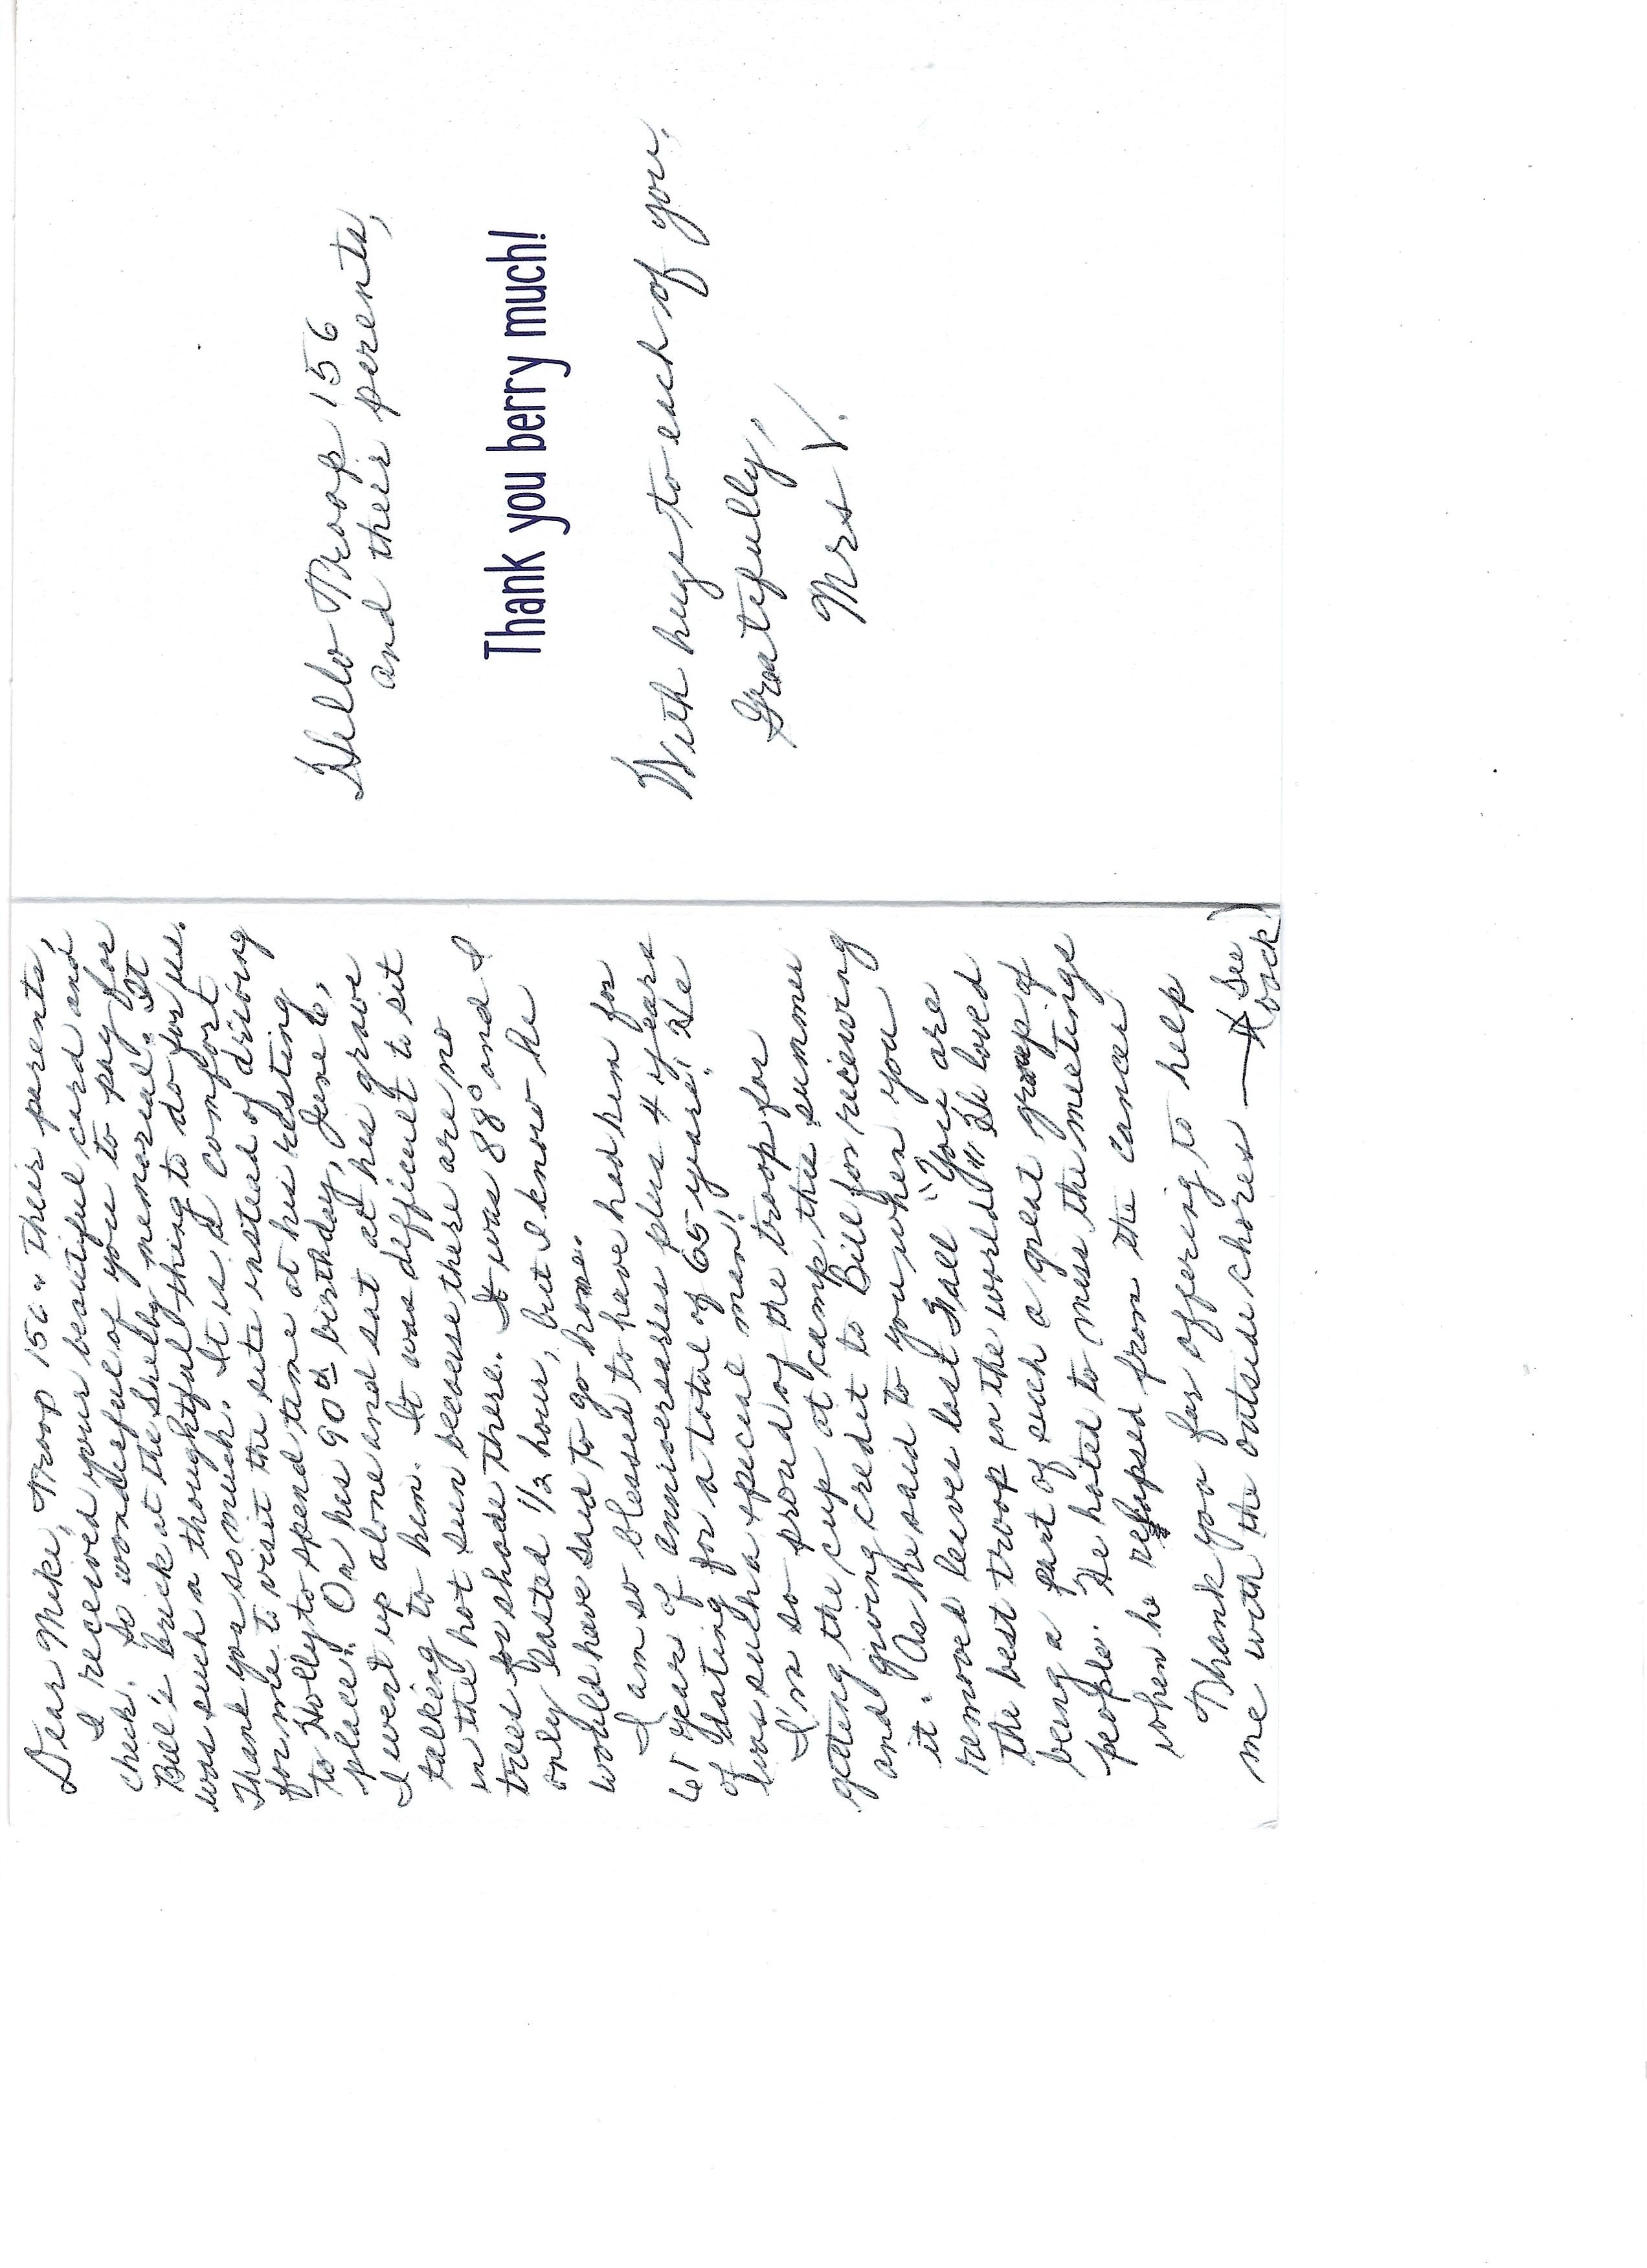 Dear Mike, Troop 156 & Their parents,
I received your beautiful card and
check. So wonderful of you to pay for
Bill's brick at the Shelby memorial. It
was such a thoughtful thing to do for us.
Thank you so much. It is a comfort
for me to visit the site instead of driving
to Holly to spend time at his resting
place. On his 90th birthday, June 6,
I went up alone and sat at his grave
talking to him. It was difficult to sit
in the hot sun because there are no
trees for shade there. It was 88° and I
only lasted 1/2 hour, but I know he
would have said to go home.
I am so blessed to have had him for
61 years of anniversaries plus 4 years
of dating for a total of 65 years! He
was such a special man!!
I'm so proud of the troop for
getting the cup at camp this summer
and giving credit to Bill for receiving
it. As he said to you when you
removed leaves last Fall "You are
the best troop in the world". He loved
being a part of such a great group of
people. He hated to miss the meetings
when he relapsed from the cancer.
Thank you for offering to help
me with the outside chores — (See
back)
Hello Troop 156
and their parents,
Thank you berry much!
With hugs to each of you,
Gratefully,
Mrs V.